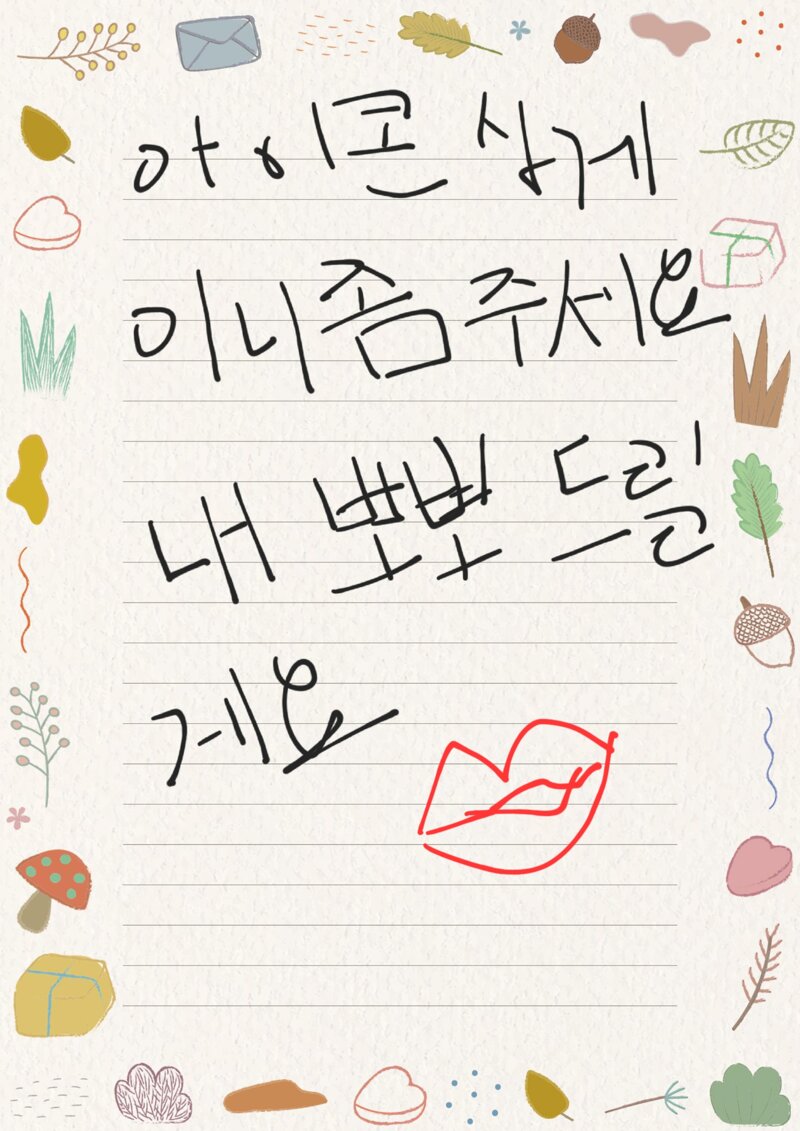 아이콘 싱게
이니좀주세요
내 뽀뽀 드릴
게요